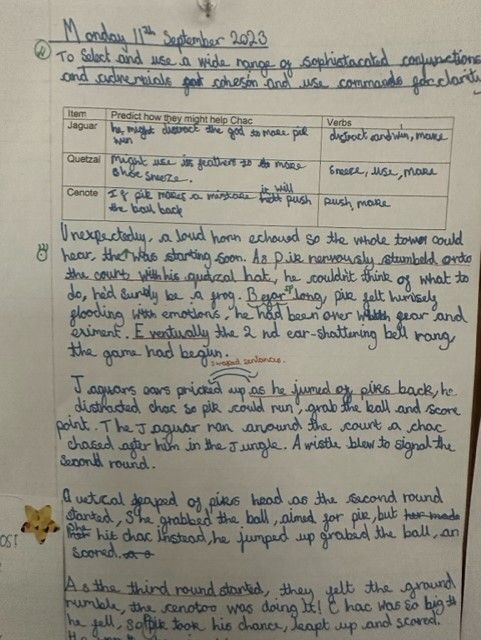 Monday 11th September 2023
To Select and use a wide range of sophistacated conjunctions
and adverbials for coheson and use commands for clarity
Item Predict how they might help Chac Verbs
Jaguar he might distract the god to make pik win distract and win, make
Quetzal Might use its feathers to make Chac sneeze. sneeze, use, make
Cenote If pik makes a mistake it will push the ball back push, make
Unexpectedly, a loud horn echoued so the whole tower could
hear, the was starting soon. As Pik nervously stumbled onto
the court with his quazal hat, he couldn't think of what to
do, he'd surely be a frog. Befor long, pik felt himself
flooding with emotions, he had been over with fear and
eriment. Eventually the 2nd ear-shattering bell rang,
the game had begun.
swaped sentances.
Jaguars ears pricked up as he jumed of piks back, he
distracted chac so pik could run, grab the ball and score
point. The Jaguar ran around the court a chac
chased after him in the Jungle. A wistle blew to signal the
second round.
Quetical leaped of piks head as the second round
started, She grabbed the ball, aimed for pik, but
his chac instead, he jumped up grabed the ball, an
scored.
As the third round started, they felt the ground
rumble, the cenotoo was doing it! Chac was so big th
he fell, so pik took his chance, leapt up and scored.